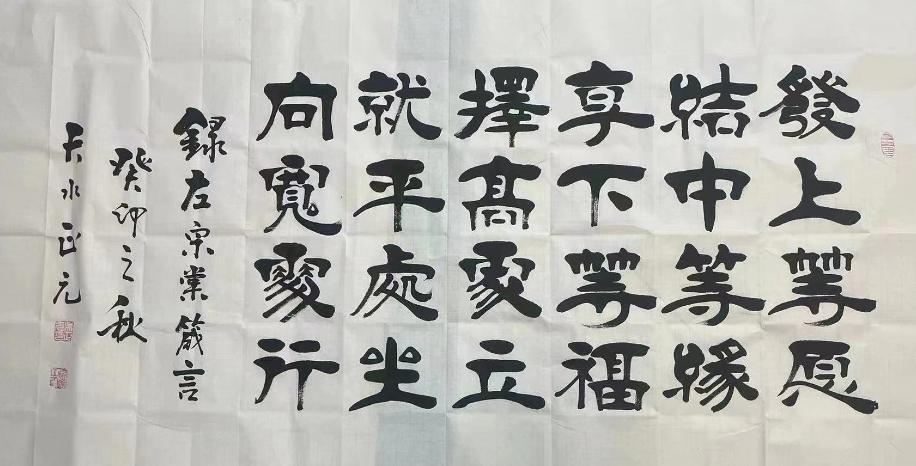 發上等愿
結中等緣
享下等福
擇高處立
就平處坐
向寬處行
錄左宗棠箴言
癸卯之秋
天水正元